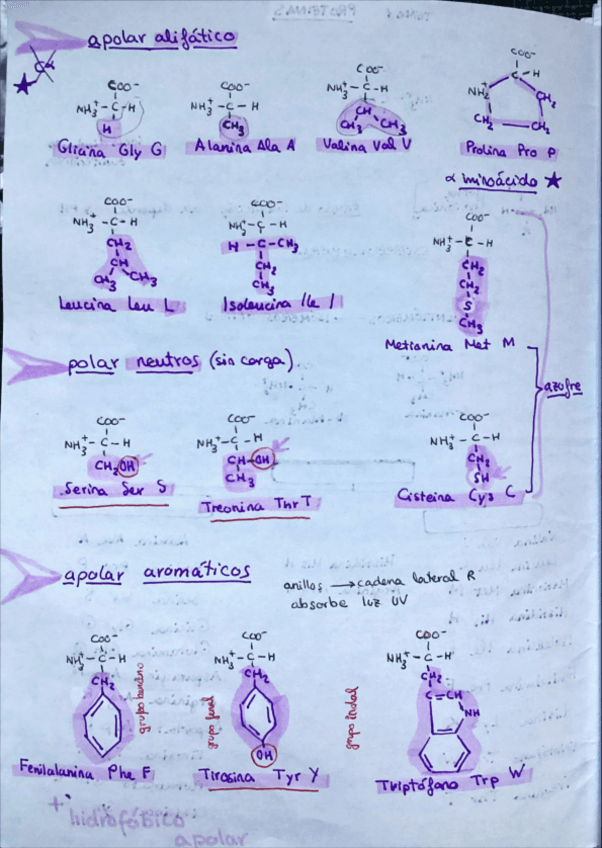 apolar alifático
Cα
COO⁻
NH₃⁺ – C – H
H
Glicina Gly G
COO⁻
NH₃⁺ – C – H
CH₃
Alanina Ala A
COO⁻
NH₃⁺ – C – H
CH
CH₃ CH₃
Valina Val V
COO⁻
C – H
NH₂⁺ CH₂
CH₂ CH₂
Prolina Pro P
α iminoácido ★
COO⁻
NH₃⁺ – C – H
CH₂
CH
CH₃ CH₃
Leucina Leu L
COO⁻
NH₃⁺ – C – H
H – C – CH₃
CH₂
CH₃
Isoleucina Ile I
COO⁻
NH₃⁺ – C – H
CH₂
CH₂
S
CH₃
Metianina Met M
polar neutros (sin carga)
azofre
COO⁻
NH₃⁺ – C – H
CH₂OH
Serina Ser S
COO⁻
NH₃⁺ – C – H
CH–OH
CH₃
Treonina Thr T
COO⁻
NH₃⁺ – C – H
CH₂
SH
Cisteina Cys C
apolar aromáticos
anillos → cadena lateral R
absorbe luz UV
COO⁻
NH₃⁺ – C – H
CH₂
grupo benceno
Fenilalanina Phe F
COO⁻
NH₃⁺ – C – H
CH₂
OH
grupo fenol
Tirosina Tyr Y
COO⁻
NH₃⁺ – C – H
CH₂
C = CH
NH
grupo indol
Triptófano Trp W
+ hidrofóbico
apolar